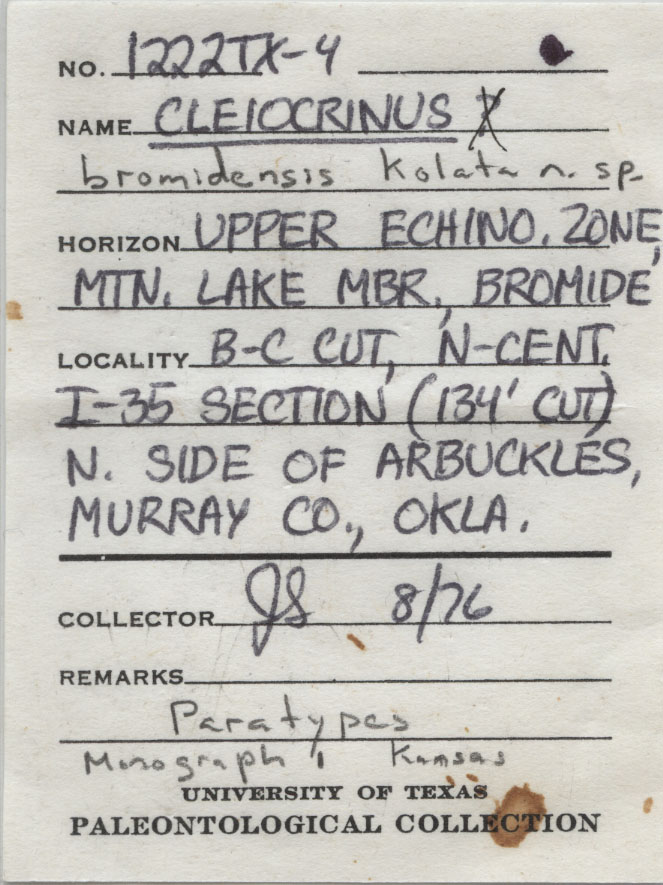 NO. 1222TX-4
NAME CLEIOCRINUS
bromidensis Kolata n. sp.
HORIZON UPPER ECHINO. ZONE,
MTN. LAKE MBR., BROMIDE
LOCALITY B-C CUT, N-CENT.
I-35 SECTION (134' CUT)
N. SIDE OF ARBUCKLES,
MURRAY CO., OKLA.
COLLECTOR JS 8/76
REMARKS
Paratypes
Monograph 1 Kansas
UNIVERSITY OF TEXAS
PALEONTOLOGICAL COLLECTION